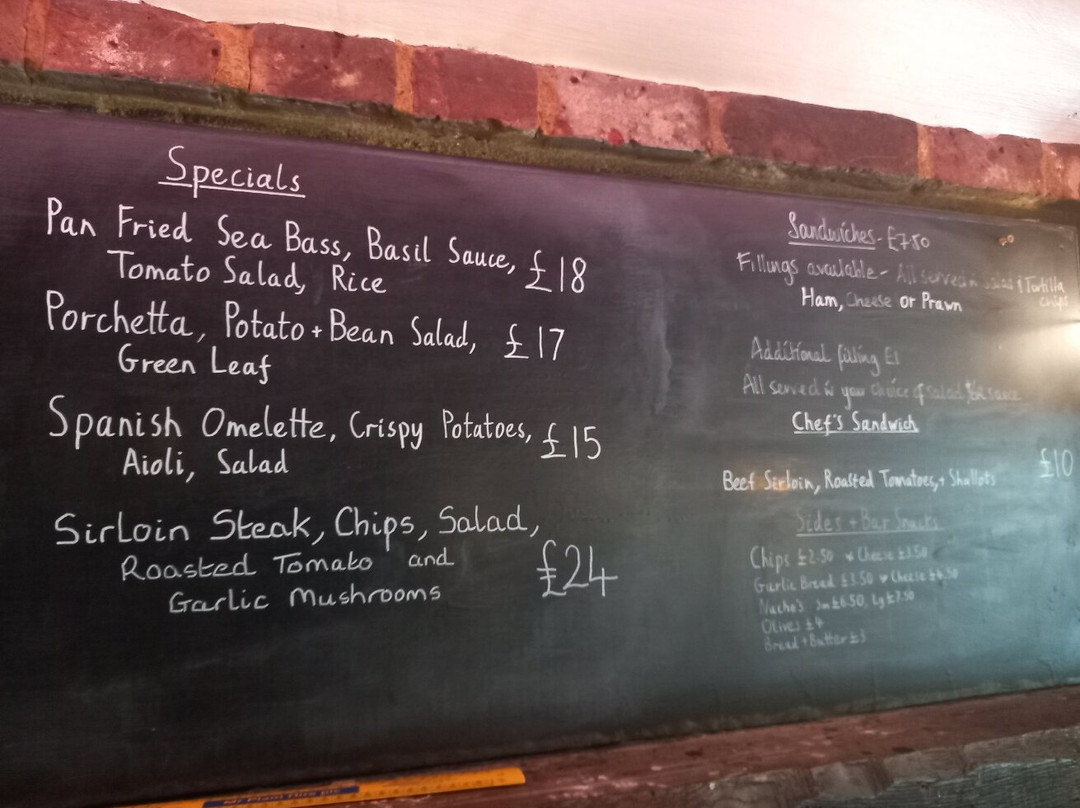 Specials
Pan Fried Sea Bass, Basil Sauce, £18
Tomato Salad, Rice
Porchetta, Potato + Bean Salad, £17
Green Leaf
Spanish Omelette, Crispy Potatoes, £15
Aioli, Salad
Sirloin Steak, Chips, Salad,
Roasted Tomato and £24
Garlic Mushrooms
Sandwiches - £7.50
Fillings available - All served in salad + Tortilla
chips
Ham, Cheese or Prawn
Additional filling £1
All served in your choice of salad sauce
Chef's Sandwich
£10
Beef Sirloin, Roasted Tomatoes, + Shallots
Sides + Bar Snacks
Chips £2.50 w Cheese £3.50
Garlic Bread £3.50 w Cheese £4.50
Nacho's Sm £6.50, Lg £7.50
Olives £4
Bread + Butter £3